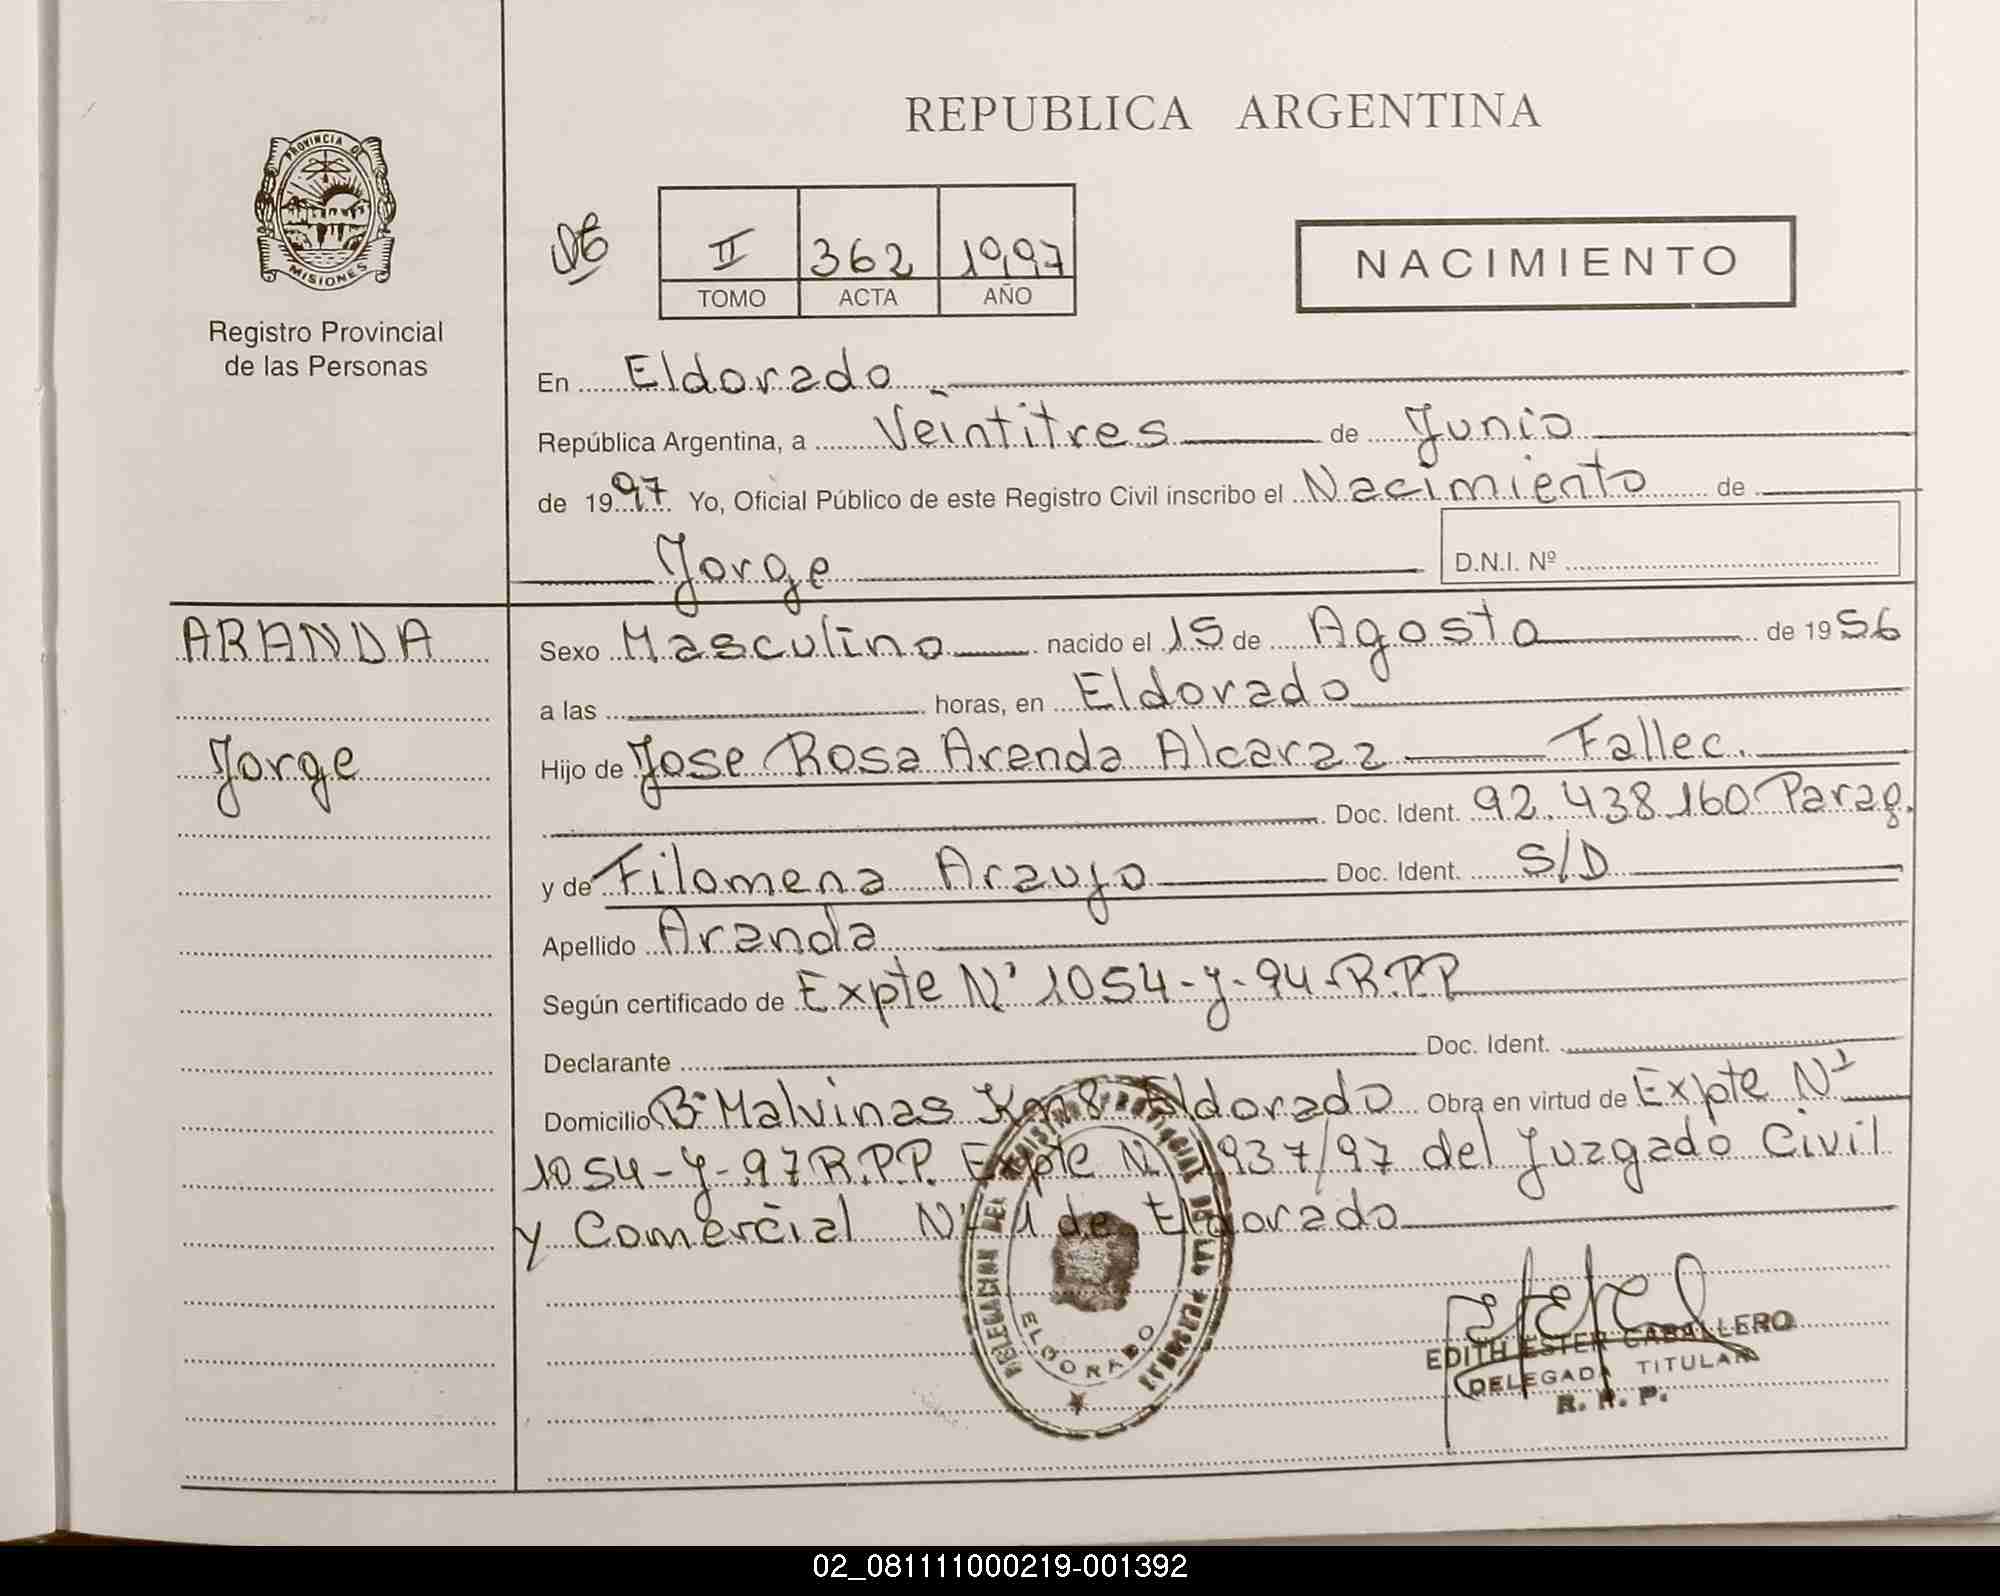 REPUBLICA ARGENTINA
PROVINCIA DE
MISIONES
Registro Provincial
de las Personas
II 362 1997
TOMO ACTA AÑO
NACIMIENTO
En Eldorado
República Argentina, a Veintitres de Junio
de 1997 Yo, Oficial Público de este Registro Civil inscribo el Nacimiento de
Jorge D.N.I. Nº
ARANDA
Jorge
Sexo Masculino nacido el 15 de Agosto de 1956
a las horas, en Eldorado
Hijo de Jose Rosa Aranda Alcaraz Fallec.
Doc. Ident. 92.438.160 Parag.
y de Filomena Araujo Doc. Ident. S/D
Apellido Aranda
Según certificado de Expte Nº 1054-J-94-R.P.P
Declarante Doc. Ident.
Domicilio Bº Malvinas Km 8 Eldorado Obra en virtud de Expte Nº
1054-J-97 R.P.P. Expte Nº 1937/97 del Juzgado Civil
y Comercial Nº 1 de Eldorado
DELEGACION DEL REGISTRO PROVINCIAL DE LAS PERSONAS
ELDORADO
EDITH ESTER CABALLERO
DELEGADA TITULAR
R. P. P.
02_081111000219-001392